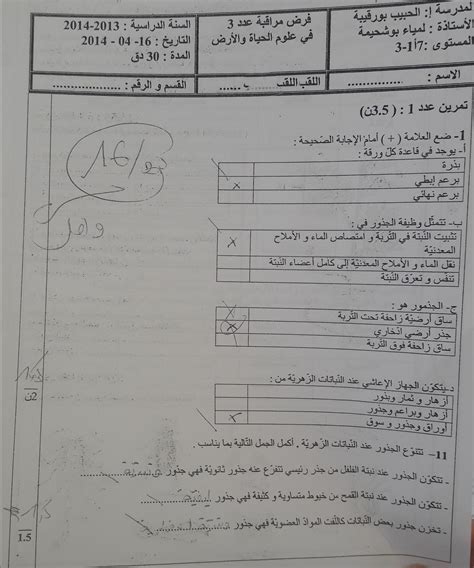 المدرسة إ: الحبيب بورقيبة
الأستاذة : لمياء بوشحيمة
المستوى :7أ1-3
فرض مراقبة عدد 3
في علوم الحياة والأرض
السنة الدراسية : 2013-2014
التاريخ : 16- 04 - 2014
المدة : 30 دق
الاسم : ...............
اللقب
القسم و الرقم : ....................
تمرين عدد 1 : ( 3.5ن)
1- ضع العلامة ( + ) أمام الإجابة الصّحيحة :
أ- يوجد في قاعدة كلّ ورقة :
بذرة
برعم إبطي
x
برعم نهائي
ب- تتمثّل وظيفة الجذور في :
تثبيت النّبتة في التّربة و امتصاص الماء و الأملاح المعدنيّة
x
نقل الماء و الأملاح المعدنيّة إلى كامل أعضاء النّبتة
تنفّس و تعرّق النّبتة
ج- الجذمور هو :
ساق أرضيّة زاحفة تحت التّربة
x
جذر أرضي ادّخاري
x
ساق زاحفة فوق التّربة
د-يتكوّن الجهاز الإعاشي عند النّباتات الزّهريّة من :
أزهار و ثمار وبذور
أزهار وبراعم وجذور
أوراق وجذور و سوق
x
2ن
11– تتنوّع الجذور عند النّباتات الزّهريّة . أكمل الجمل التّالية بما يناسب .
- تتكوّن الجذور عند نبتة الفلفل من جذر رئيسي تتفرّع عنه جذور ثانويّة فهي جذور
- تتكوّن الجذور عند نبتة القمح من خيوط متساوية و كثيفة فهي جذور ليفيّة
- تخزن جذور بعض النّباتات كاللّفت الموادّ العضويّة فهي جذور
1.5